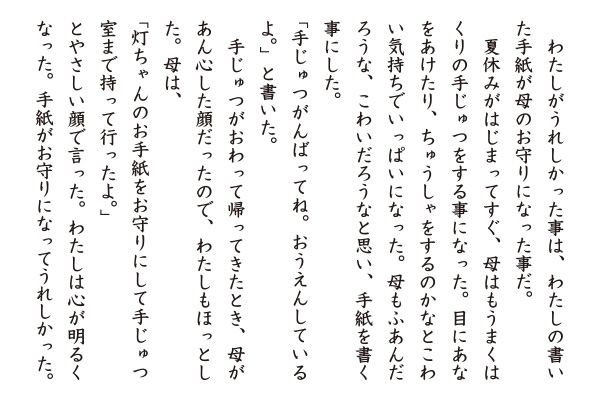 わたしがうれしかった事は、わたしの書い
た手紙が母のお守りになった事だ。
夏休みがはじまってすぐ、母はもうまくは
くりの手じゅつをする事になった。目にあな
をあけたり、ちゅうしゃをするのかなとこわ
い気持ちでいっぱいになった。母もふあんだ
ろうな、こわいだろうなと思い、手紙を書く
事にした。
「手じゅつがんばってね。おうえんしている
よ。」と書いた。
手じゅつがおわって帰ってきたとき、母が
あん心した顔だったので、わたしもほっとし
た。母は、
「灯ちゃんのお手紙をお守りにして手じゅつ
室まで持って行ったよ。」
とやさしい顔で言った。わたしは心が明るく
なった。手紙がお守りになってうれしかった。